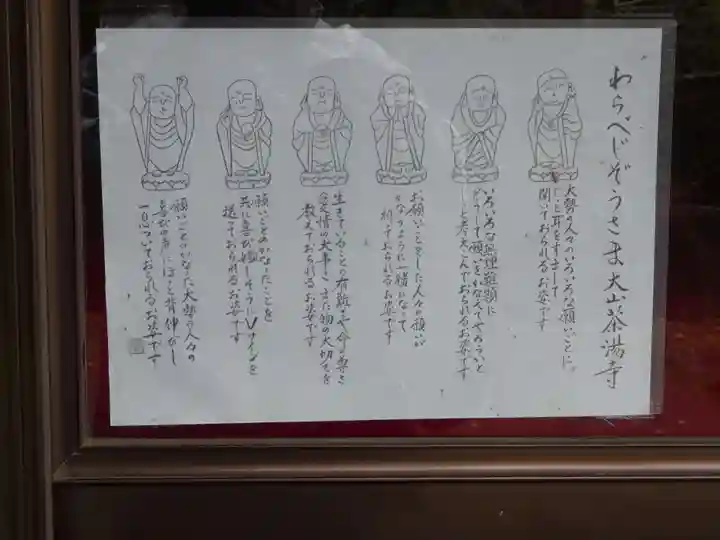 わらべじぞうさま 大山茶湯寺
大勢の人々のいろいろな願いごとに
じっと耳をすまして
聞いておられるお姿です
いろいろな無理難題に
どうして願いをかなえてやろうかと
じっと考えこんでおられるお姿です
お願いごとをした人々の願いが
かなうように一緒になって
祈っておられるお姿です
生きていることの有難さ、命の尊さ
愛情の大事さ、また物の大切さを
教えておられるお姿です
願いごとのかなったことを
共に喜び嬉しそうにVサインを
送っておられるお姿です
願いごとのかなった大勢の人々の
喜びの声にほっと背伸びし
一息ついておられるお姿です